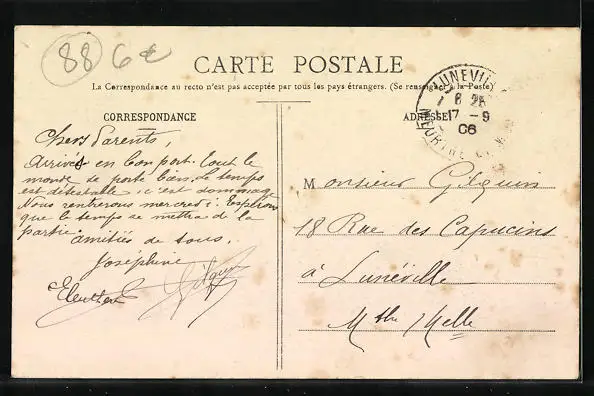 88 6€
CARTE POSTALE
La Correspondance au recto n'est pas acceptée par tous les pays étrangers. (Se renseigner à la Poste)
CORRESPONDANCE
ADRESSE
LUNEVILLE
8 25
17 - 9
06
MEURTHE ET M
Chers Parents,
Arrivés en bon port. tout le
monde se porte bien. Le temps
est détestable c'est dommage
Nous rentrerons mercredi. Espérons
que le temps se mettra de la
partie.
amitiés de tous.
Joséphine
Monsieur
18 Rue des Capucins
à Lunéville
Mthe / Melle